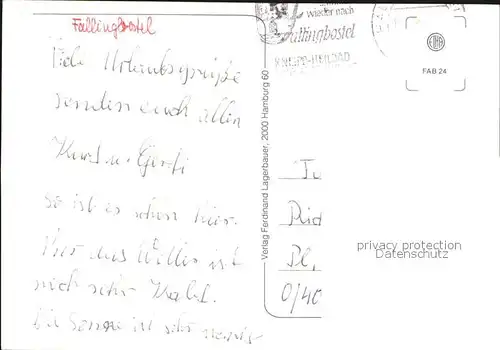 Fallingbostel
Viele Urlaubsgrüße
senden euch allen
Kurt u. Gerti
so ist es schon hier.
Nur das Wetter ist
noch sehr kalt.
Die Sonne ist sehr
wieder nach
Fallingbostel
KNEIPP-HEILBAD
Verlag Ferdinand Lagerbauer, 2000 Hamburg 60
FAB 24
Pl,
0/40
privacy protection
Daksammler.com